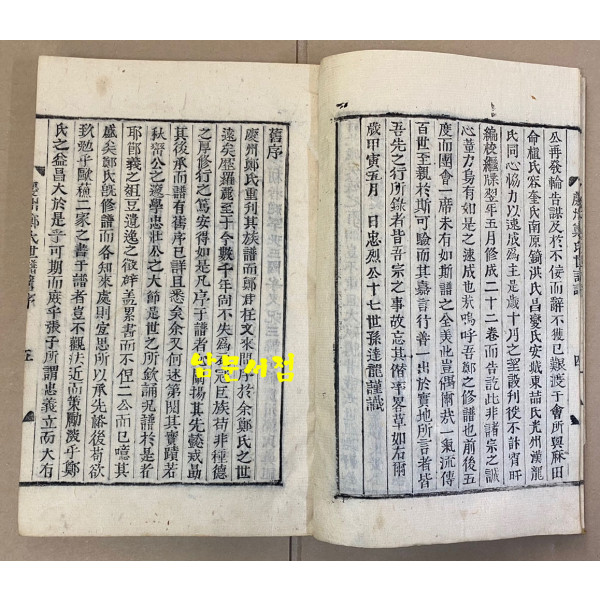 慶州鄭氏世譜 四
公再發輪告諜反於不佞而辭不獲已艱渡于會所與麻田
命植氏容奎氏南原鎬洪氏昌燮氏安城東喆氏光州漢龍
氏同心恊力以速成為主是歲十月之望設刊役不計宵旰
編校繼牒翌年五月修成二十二卷而告訖此非諸宗之誠
心蓄力烏有如是之速成也㢤嗚呼吾鄭之修譜也前後五
度而團會一席未有如斯譜之全美也豈偶爾㢤一氣流傳
百世至親於斯可驗而其嘉言行善一出於實地所言者皆
吾先之行所錄者皆吾宗之事故忘其僭率畧草如右爾
歲甲寅五月 日忠烈公十七世孫達龍謹識
舊序
慶州鄭氏重刊其族譜而鄭君枉文來問序於余鄭氏之世
遠矣歷羅麗至于今數千年尚不失為冠巨族苟非種德
之厚修行之篤安得如是凡序于譜者闡揚其先懿戒勗
其後承而譜有舊序已詳且悉矣余又何述第閱其實蹟若
秋齋公之邃學忠莊公之大節是世之所欽誦況譜於是者
耶節義之俎豆遺逸之徵辟盖累書而不俚二公而已噫其
盛矣鄭氏旣修譜而各知來處則宜思所以承先裕後苟欲
孜勉乎歐蘓二家之書于譜者豈不觀法近而策勵激乎鄭
氏之益昌大於是乎可期而庶乎張子所謂忠義立而大有
慶州鄭氏世譜舊序 五
남문서점